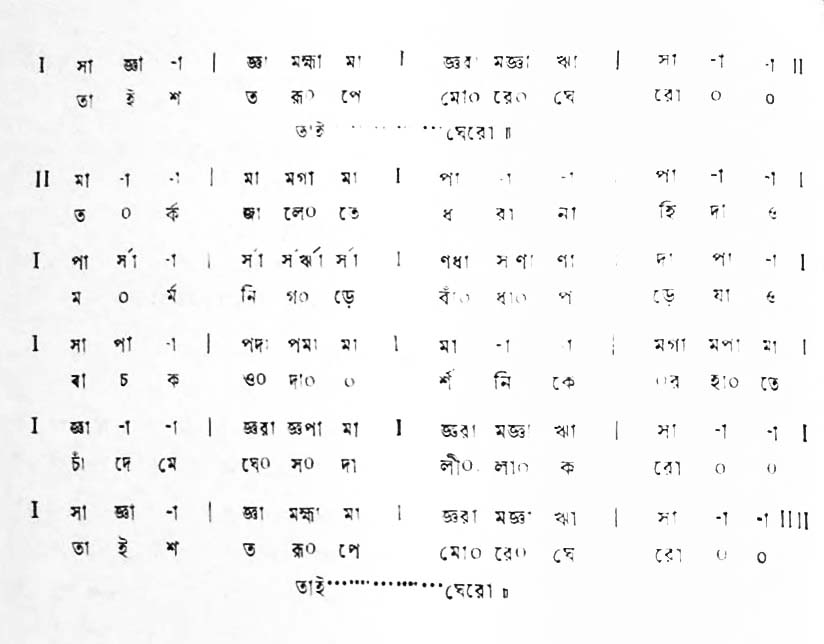 I সা জ্ঞা -া | জ্ঞা মহ্মা মা I জ্ঞরা মজ্ঞা ঋা | সা -া -া II
তা ই শ ত রূ০ পে মো০ রে০ ঘে রো ০ ০
তাই··············ঘেরো ॥
II মা -া -া | মা মগা মা I পা -া -া | পা -া -া I
ত ০ র্ক জা লে০ তে ধ রা না হি দা ও
I পা র্সা -া | র্সা র্সর্ঋা র্সা I ণধা সণা ণা | দা পা -া I
ম ০ র্ম নি গ০ ড়ে বাঁ০ ধা০ প ড়ে যা ও
I সা পা -া | পদা পমা মা I মা -া -া | মগা মপা মা I
বা চ ক ও০ দা০ ০ র্শ নি কে ০র হা০ তে
I জ্ঞা -া -া | জ্ঞরা জ্ঞপা মা I জ্ঞরা মজ্ঞা ঋা | সা -া -া I
চাঁ দে মে ঘে০ স০ দা লী০ লা০ ক রো ০ ০
I সা জ্ঞা -া | জ্ঞা মহ্মা মা I জ্ঞরা মজ্ঞা ঋা | সা -া -া II II
তা ই শ ত রূ০ পে মো০ রে০ ঘে রো ০ ০
তাই·················ঘেরো ॥